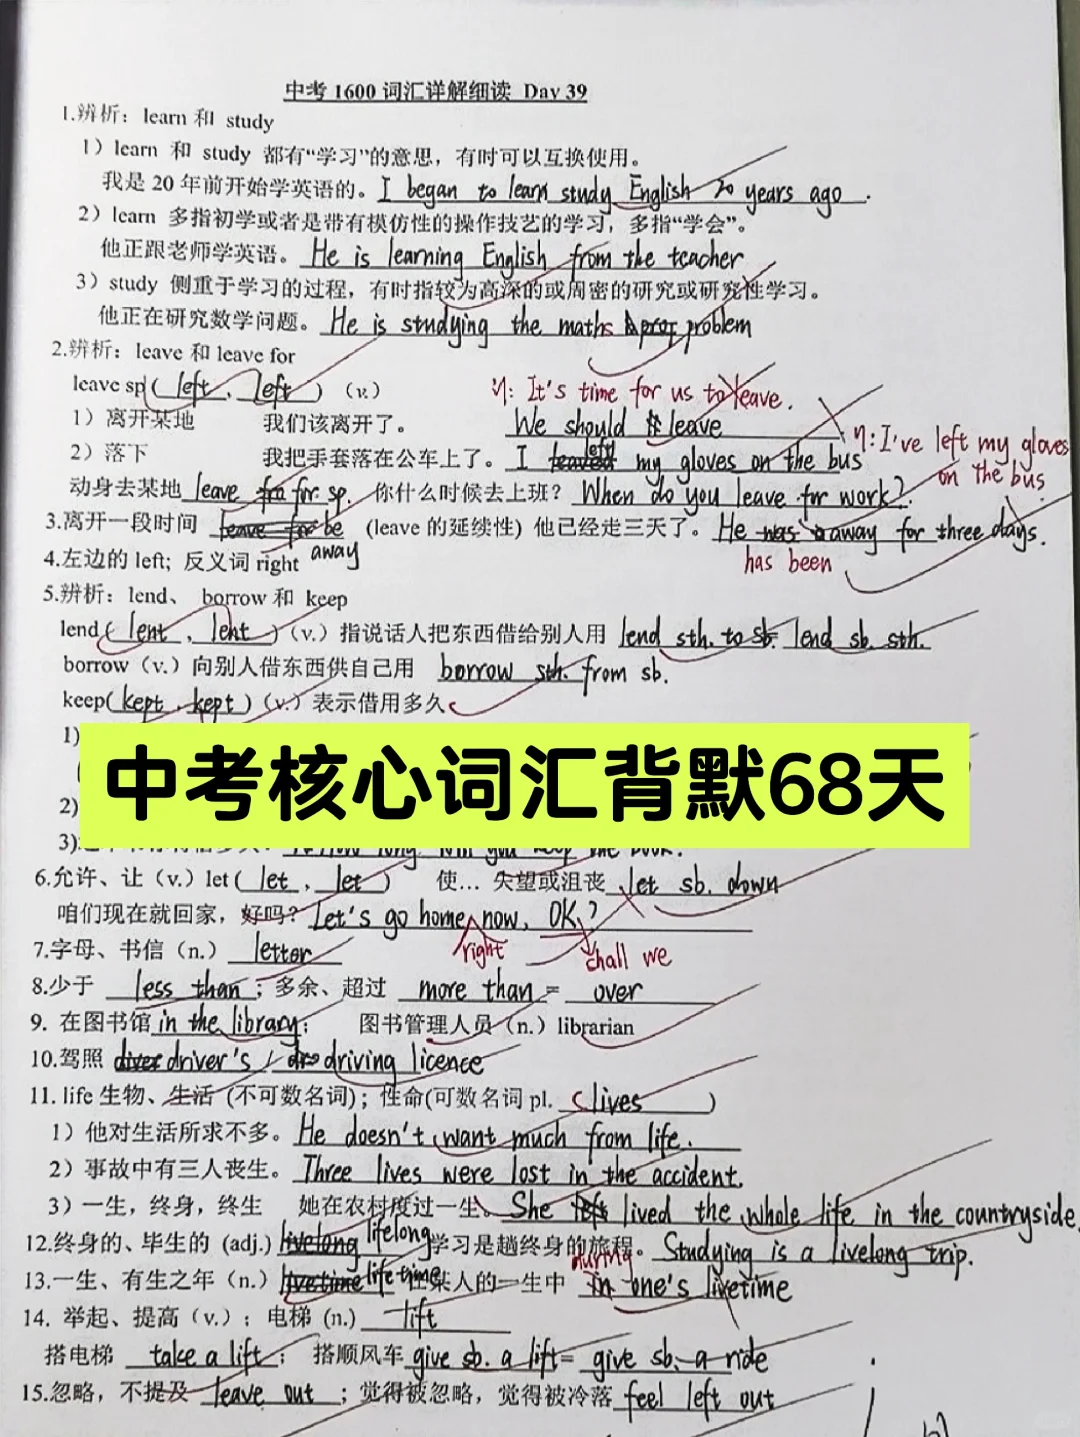 中考 1600 词汇详解细读 Day 39
1.辨析：learn 和 study
1）learn 和 study 都有“学习”的意思，有时可以互换使用。
我是 20 年前开始学英语的。I began to learn study English 20 years ago.
2）learn 多指初学或者是带有模仿性的操作技艺的学习，多指“学会”。
他正跟老师学英语。He is learning English from the teacher
3）study 侧重于学习的过程，有时指较为高深的或周密的研究或研究性学习。
他正在研究数学问题。He is studying the maths problem
2.辨析：leave 和 leave for
leave sp( left , left )（v.） 1: It's time for us to leave.
1）离开某地 我们该离开了。 We should leave
2）落下 我把手套落在公车上了。I left my gloves on the bus 1: I've left my gloves on the bus.
动身去某地 leave for sp. 你什么时候去上班？When do you leave for work?
3.离开一段时间 be away (leave 的延续性) 他已经走三天了。He was away for three days.
has been
4.左边的 left; 反义词 right
5.辨析：lend、 borrow 和 keep
lend( lent , lent )（v.）指说话人把东西借给别人用 lend sth. to sb.= lend sb. sth.
borrow（v.）向别人借东西供自己用 borrow sth. from sb.
keep( kept , kept )（v.）表示借用多久
1)
中考核心词汇背默68天
2)
3)
6.允许、让（v.）let ( let , let ) 使... 失望或沮丧 let sb. down
咱们现在就回家，好吗？Let's go home now, OK?
right shall we
7.字母、书信（n.） letter
8.少于 less than ；多余、超过 more than = over
9. 在图书馆 in the library； 图书管理人员（n.）librarian
10.驾照 driver's / driving licence
11. life 生物、生活 (不可数名词)；性命(可数名词 pl. lives )
1）他对生活所求不多。He doesn't want much from life.
2）事故中有三人丧生。Three lives were lost in the accident.
3）一生，终身，终生 她在农村度过一生。She lived the whole life in the countryside.
12.终身的、毕生的 (adj.) lifelong 学习是趟终身的旅程。Studying is a livelong trip.
13.一生、有生之年（n.）lifetime 在某人的一生中 in one's livetime
during
14. 举起、提高（v.）; 电梯 (n.) lift
搭电梯 take a lift； 搭顺风车 give sb. a lift = give sb. a ride
15.忽略，不提及 leave out ；觉得被忽略，觉得被冷落 feel left out